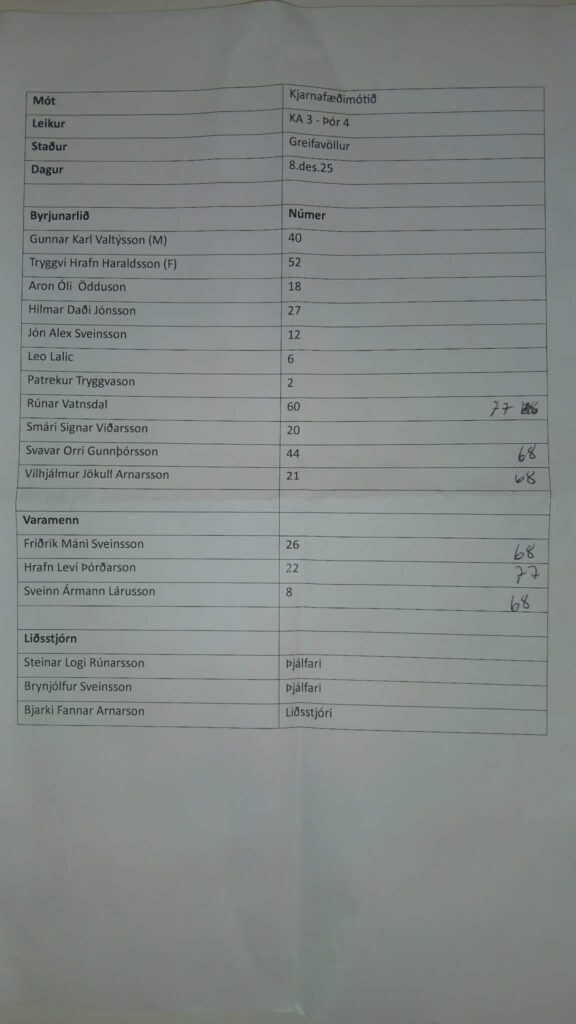 Mót Kjarnafæðimótið
Leikur KA 3 - Þór 4
Staður Greifavöllur
Dagur 8.des.25
Byrjunarlið Númer
Gunnar Karl Valtýsson (M) 40
Tryggvi Hrafn Haraldsson (F) 52
Aron Óli Ödduson 18
Hilmar Daði Jónsson 27
Jón Alex Sveinsson 12
Leo Lalic 6
Patrekur Tryggvason 2
Rúnar Vatnsdal 60 77
Smári Signar Viðarsson 20
Svavar Orri Gunnþórsson 44 68
Vilhjálmur Jökull Arnarsson 21 68
Varamenn
Friðrik Máni Sveinsson 26 68
Hrafn Leví Þórðarson 22 77
Sveinn Ármann Lárusson 8 68
Liðsstjórn
Steinar Logi Rúnarsson Þjálfari
Brynjólfur Sveinsson Þjálfari
Bjarki Fannar Arnarson Liðsstjóri